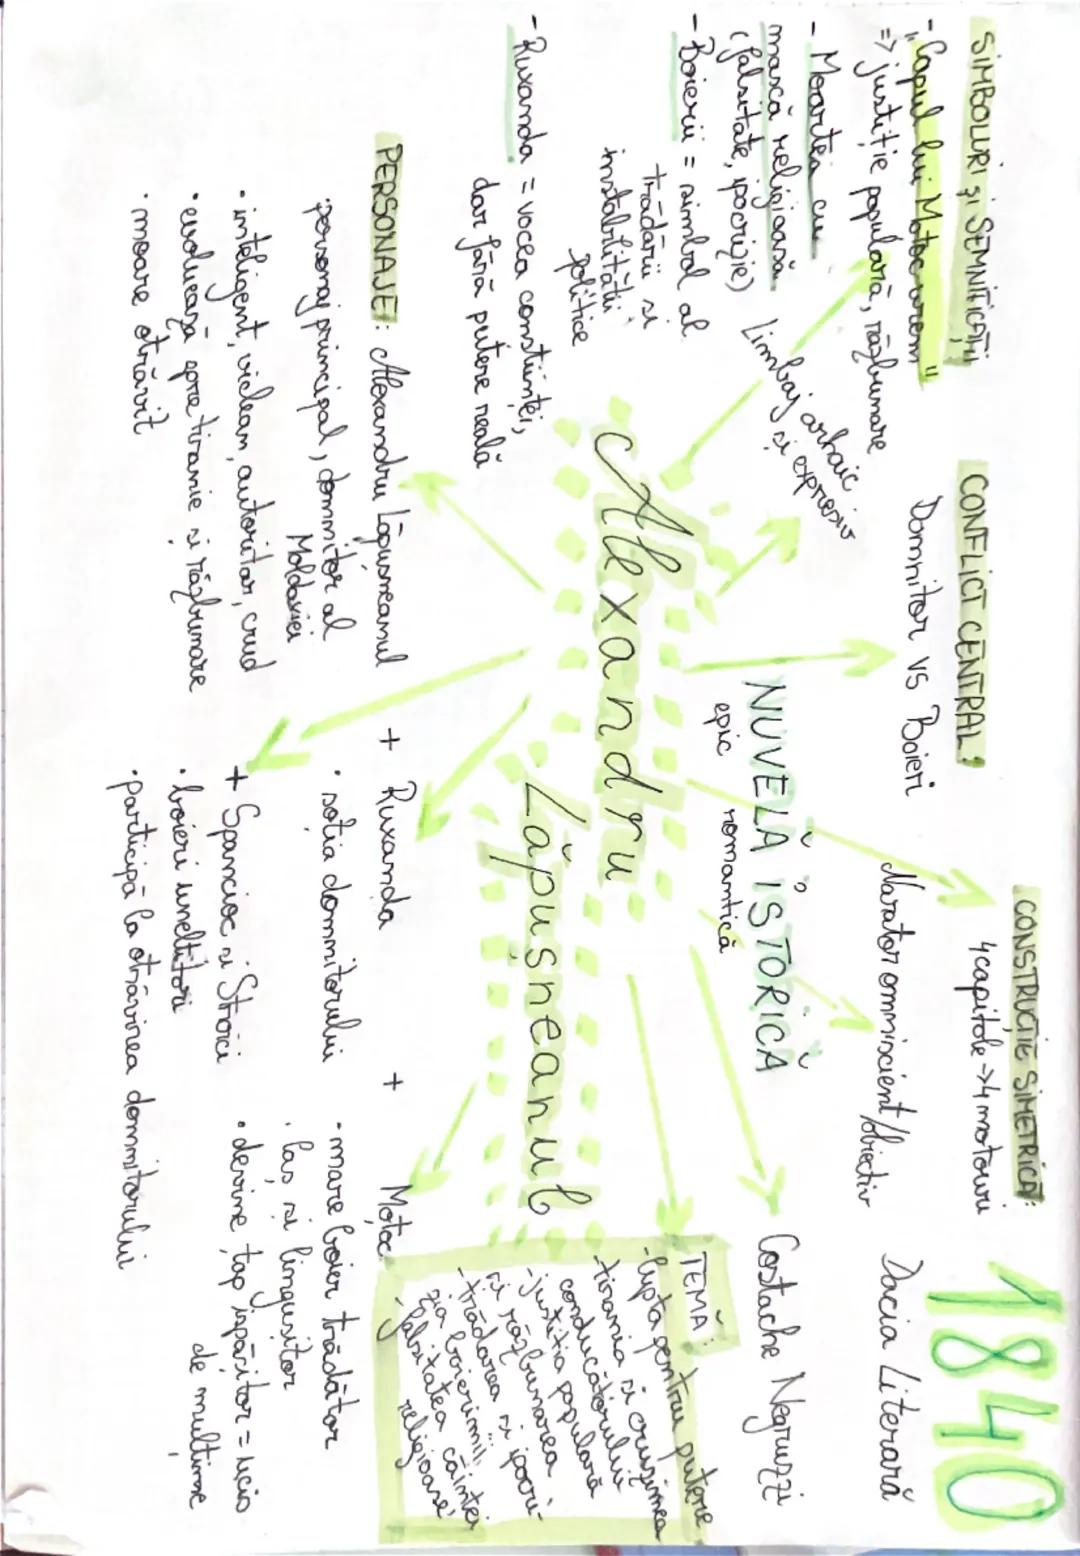 SIMBOLURI și SEMNIFICAȚII
- "Capul lui Moțoc vrem"
=> justiție populară, răzbunare
- Moartea cu
mască religioasă
(falsitate, ipocrizie)
- Boierii = simbol al
trădării și
instabilității
politice
- Ruxanda = vocea conștiinței,
dar fără putere reală
Limbaj arhaic
și expresiv
CONFLICT CENTRAL:
Domnitor vs Boieri
CONSTRUCȚIE SIMETRICĂ:
4 capitole -> 4 motouri
Narator omniscient/obiectiv
1840
Dacia Literară
NUVELĂ ISTORICĂ
epic romantică
Costache Negruzzi
Alexandru
Lăpușneanul
TEMĂ:
- lupta pentru putere
- tirania și cruzimea
conducătorului
- justiția populară
și răzbunarea
- trădarea și ipocri-
zia boierimii
- falsitatea căinței
religioase
PERSONAJE: Alexandru Lăpușneanul + Ruxanda + Moțoc
• personaj principal, domnitor al
Moldovei
• inteligent, viclean, autoritar, crud
• evoluează spre tiranie și răzbunare
• moare otrăvit
• soția domnitorului
+ Spancioc și Stroici
• boieri uneltitori
• participă la otrăvirea domnitorului
• mare boier trădător
• laș și lingușitor
• devine țap ispășitor = ucis
de mulțime